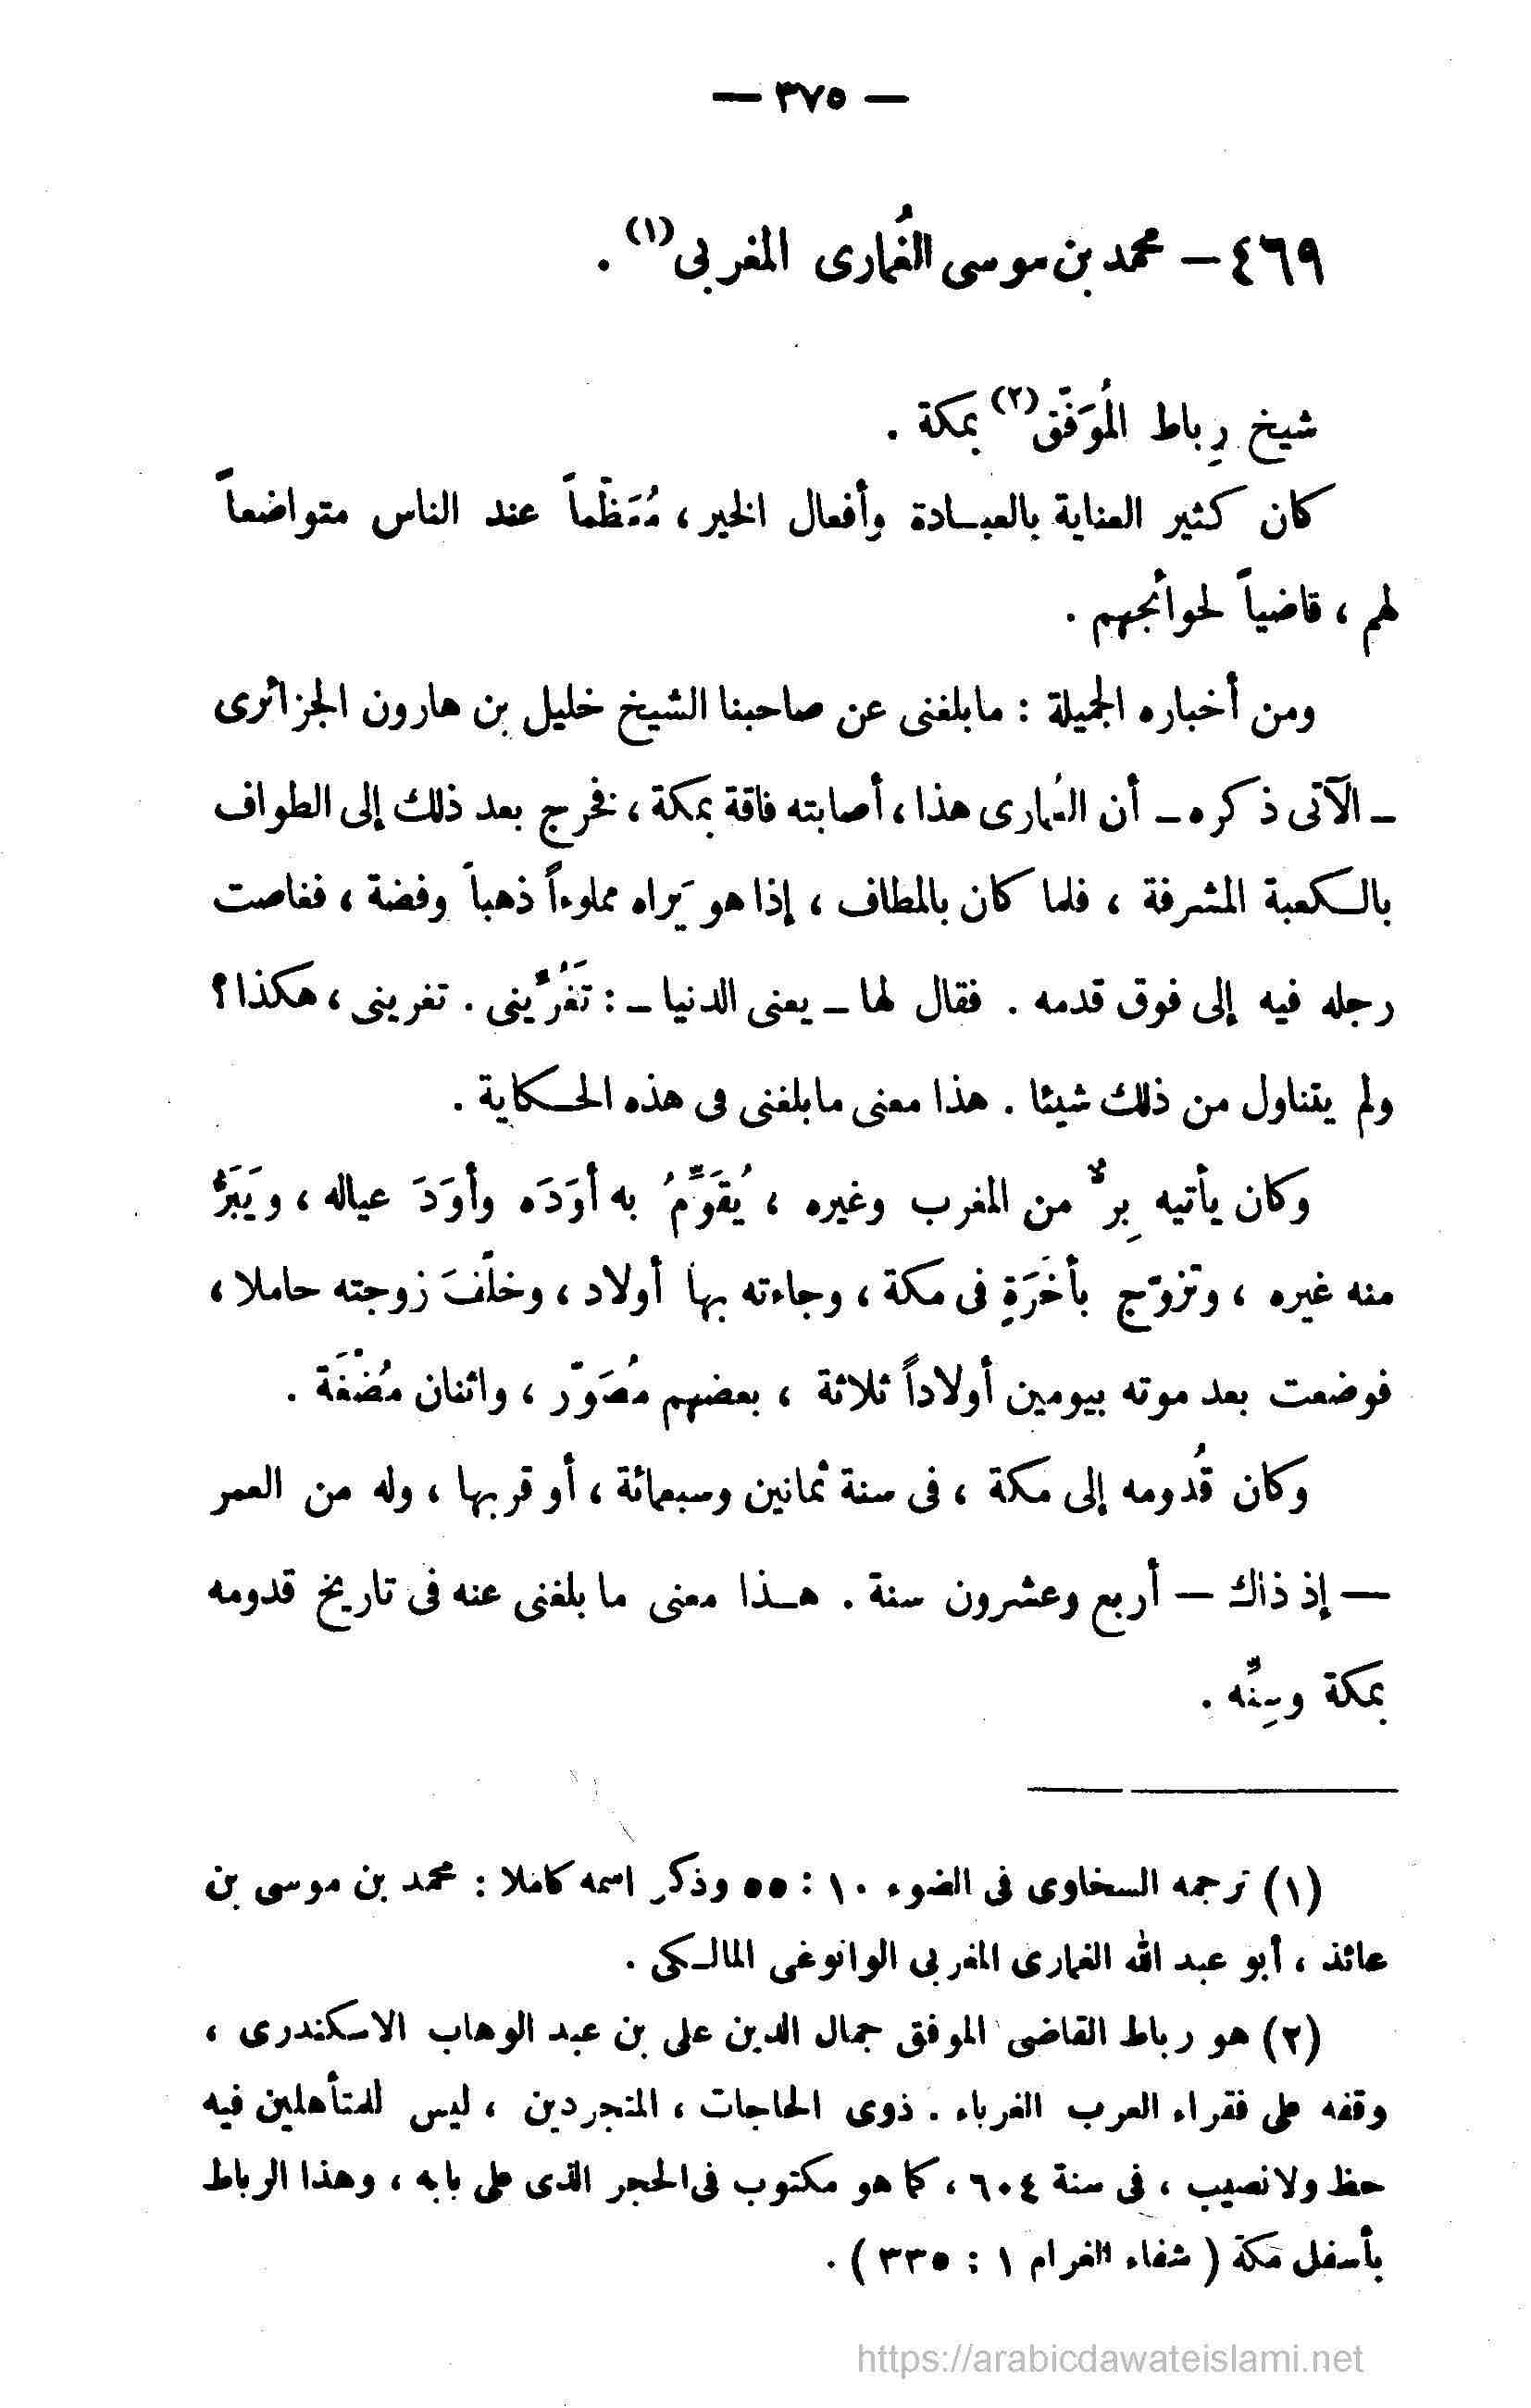 — ٣٧٥ —
٤٦٩ – محمد بن موسى الغُمارى المغربى(١) .
شيخ رِباط المُوَفَّق(٢) بمكة .
كان كثير العناية بالعبادة وأفعال الخير ، مُعَظَّماً عند الناس متواضعاً
لهم ، قاضياً لحوائجهم .
ومن أخباره الجميلة : مابلغنى عن صاحبنا الشيخ خليل بن هارون الجزائرى
– الآتى ذكره – أن الغُمارى هذا ، أصابته فاقة بمكة ، فخرج بعد ذلك إلى الطواف
بالكعبة المشرفة ، فلما كان بالمطاف ، إذا هو يَراه مملوءاً ذهباً وفضة ، فغاصت
رجله فيه إلى فوق قدمه . فقال لها – يعنى الدنيا – : تَغُرِّينى . تغرينى ، هكذا ؟
ولم يتناول من ذلك شيئا . هذا معنى مابلغنى فى هذه الحكاية .
وكان يأتيه بِرٌّ من المغرب وغيره ، يُقَوِّمُ به أوَدَه وأوَدَ عياله ، ويَبَرُّ
منه غيره ، وتزوّج بأخَرَةٍ فى مكة ، وجاءته بها أولاد ، وخلّفَ زوجته حاملا ،
فوضعت بعد موته بيومين أولاداً ثلاثة ، بعضهم مُصَوّر ، واثنان مُضْغَة .
وكان قُدومه إلى مكة ، فى سنة ثمانين وسبعمائة ، أو قربها ، وله من العمر
— إذ ذاك — أربع وعشرون سنة . هذا معنى ما بلغنى عنه فى تاريخ قدومه
بمكة وسِنِّه .
(١) ترجمه السخاوى فى الضوء ١٠ : ٥٥ وذكر اسمه كاملا : محمد بن موسى بن
عائذ ، أبو عبد الله الغمارى المغربى الوانوغى المالكى .
(٢) هو رباط القاضى الموفق جمال الدين على بن عبد الوهاب الاسكندرى ،
وقفه على فقراء العرب الغرباء . ذوى الحاجات ، المتجردين ، ليس للمتأهلين فيه
حظ ولانصيب ، فى سنة ٦٠٤ ، كما هو مكتوب فى الحجر الذى على بابه ، وهذا الرباط
بأسفل مكة ( شفاء الغرام ١ : ٣٣٥ ) .
https://arabicdawateislami.net